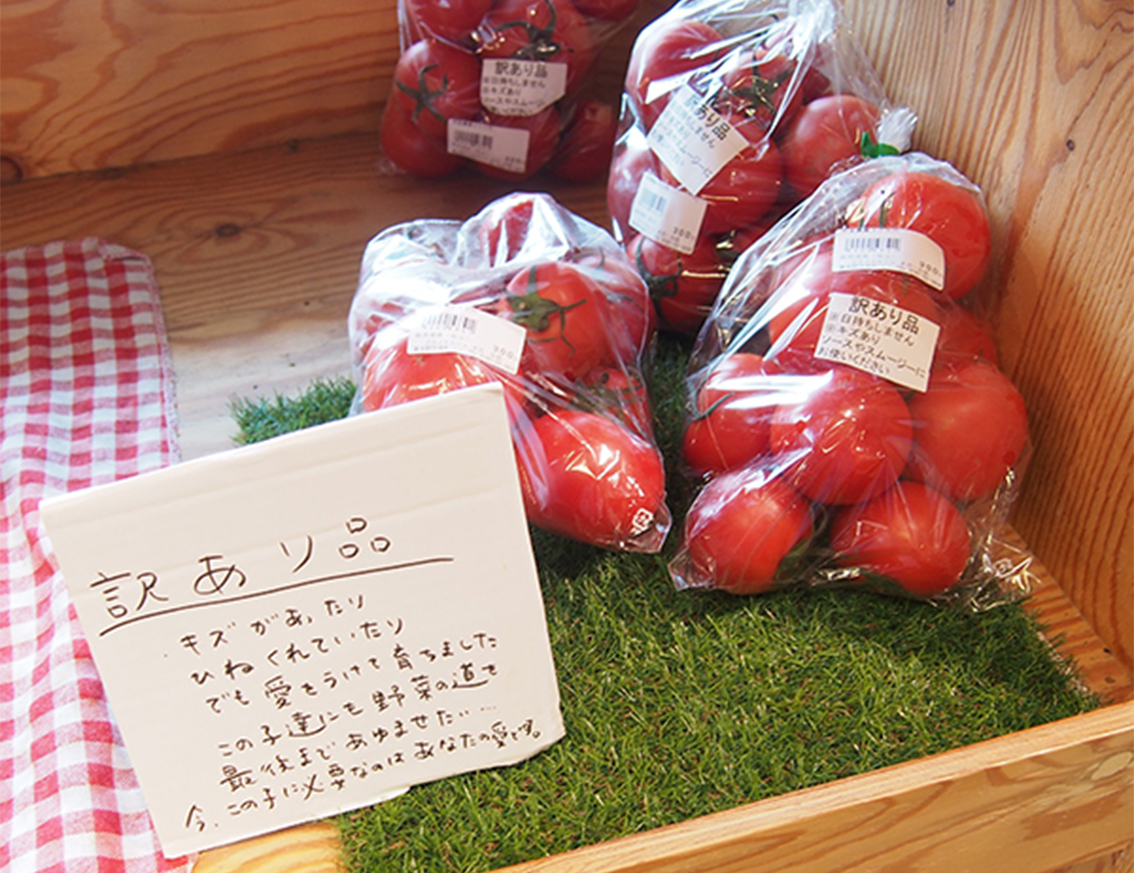 訳あり品
※日持ちしません
※キズあり
ソースやスムージーに
お使いください
訳あり品
訳あり品
※日持ちしません
※キズあり
ソースやスムージーに
お使いください
訳あり品
キズがあったり
ひねくれていたり
でも愛をうけて育ちました
この子達にも野菜の道を
最後まであゆませたい…
今、この子に必要なのはあなたの愛です。